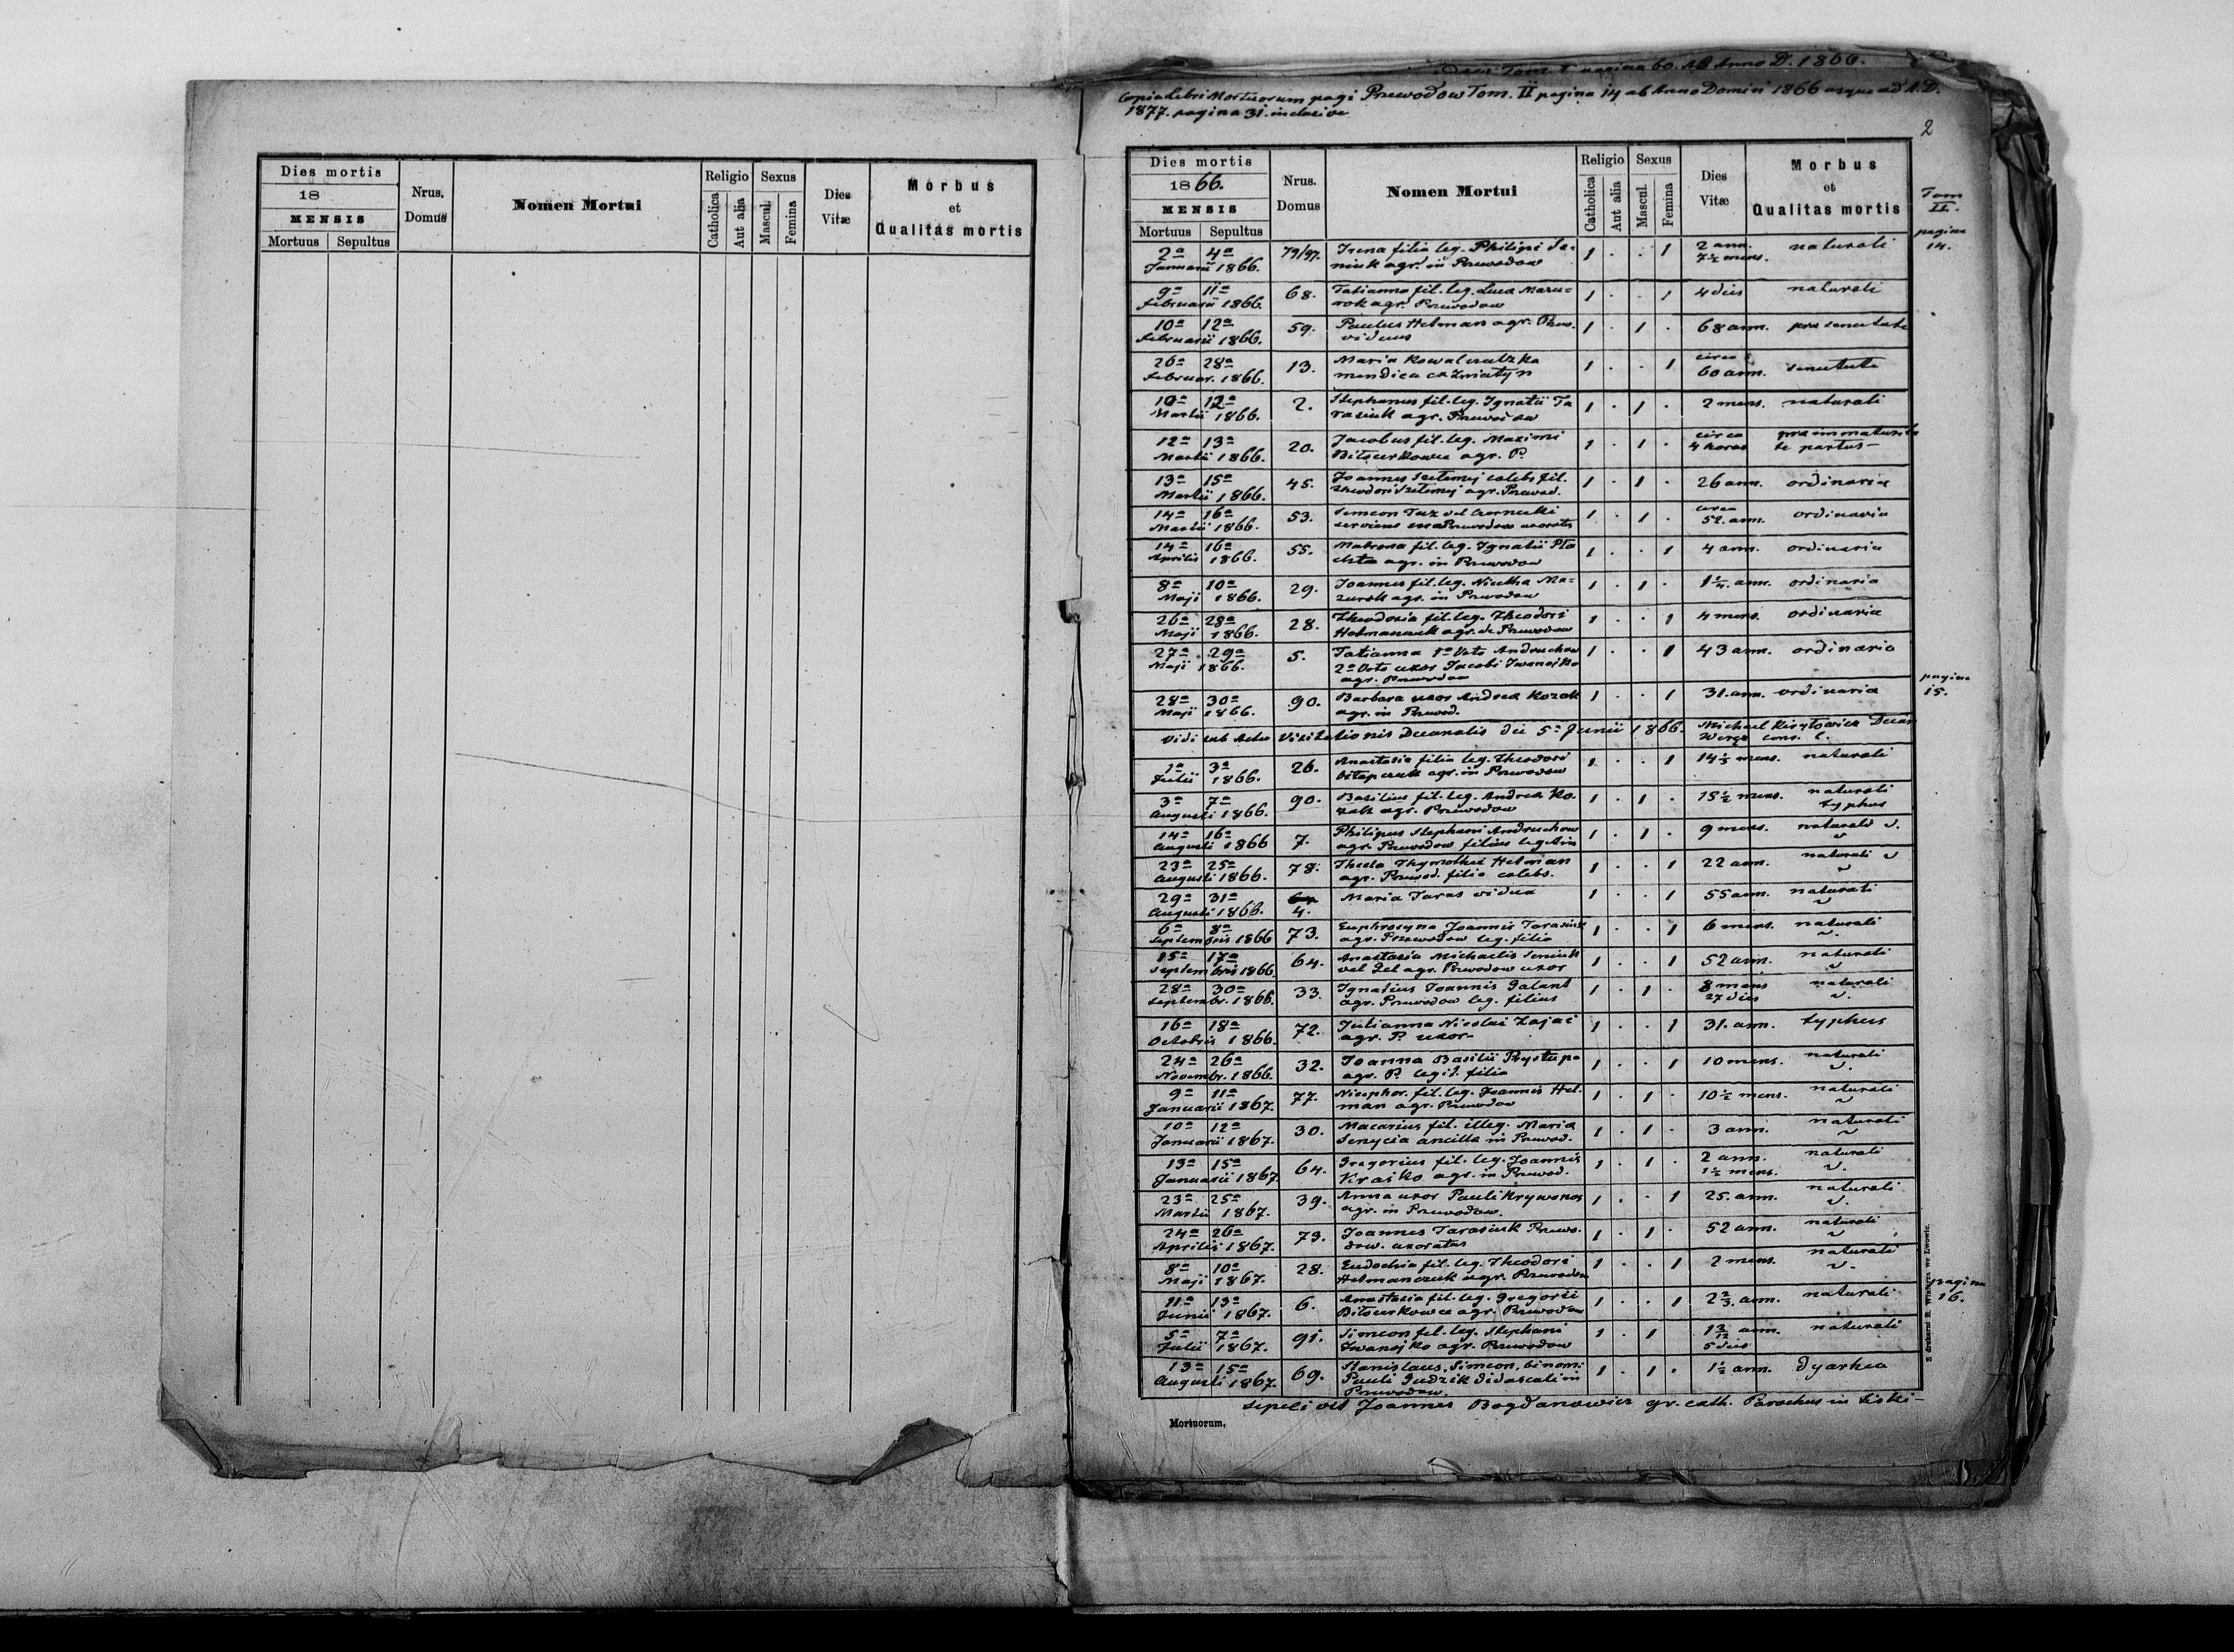 Dies mortis
18
MENSIS
Mortuus Sepultus
Nrus. Domus
Nomen Mortui
Religio
Catholica
Aut alia
Sexus
Mascul.
Femina
Dies Vitæ
Morbus et Qualitas mortis
Tom. pagina 60. Ab Anno D. 1866.
Copia Libri Mortuorum pagi Przewodow Tom. II pagina 14 ab Anno Domini 1866 usque ad A.D.
1877. pagina 31. inclusive
2
Dies mortis
1866.
MENSIS
Mortuus Sepultus
Nrus. Domus
Nomen Mortui
Religio
Catholica
Aut alia
Sexus
Mascul.
Femina
Dies Vitæ
Morbus et Qualitas mortis
Tom II.
pagina 14.
2a 4a 79/97. Irena filia leg. Philipi 1 . . 1 2 ann. naturali
Januarii 1866. agr. in Przewodow 7½ mens.
9a 11a 68. Tatianna fil. leg. Luca Mazu= 1 . . 1 4 dies naturali
Februarii 1866. rok agr. Przewodow
10a 12a 59. Paulus Hetman agr. Przew. 1 . 1 . 68 ann. pra senectute
Februarii 1866. viduus
26a 28a 13. Maria 1 . . 1 circa 60 ann. senectute
Februar. 1866. mendica ex
10a 12a 2. Stephanus fil. leg. Ignatii Ta 1 . 1 . 2 mens. naturali
Martii 1866. rasiuk agr. Przewodow
12a 13a 20. Jacobus fil. leg. Maximi 1 . 1 . circa 4 horas pra immaturita
Martii 1866. agr. P. te partus
13a 15a 45. Joannes calebs fil. 1 . 1 . 26 ann. ordinaria
Martii 1866. Theodori agr. Przewod.
14a 16a 53. Simeon vel 1 . 1 . circa 52. ann. ordinaria
Martii 1866. serviens Przewodow uxoratus
14a 16a 55. Matrona fil. leg. Ignatii 1 . . 1 4 ann. ordinaria
Aprilis 1866. agr. in Przewodow
8a 10a 29. Joannes fil. leg. Nicetha Ma= 1 . 1 . 1¼ ann. ordinaria
Maji 1866. zurok agr. in Przewodow
26a 28a 28. Theodosia fil. leg. Theodori 1 . . 1 4 mens. ordinaria
Maji 1866. Hetmanczuk agr. de Przewodow
27a 29a 5. Tatianna 1o Voto Andruchow 1 . . 1 43 ann. ordinaria
Maji 1866. 2o Voto uxor Jacobi Iwanejko
agr. Przewodow
pagina 15.
28a 30a 90. Barbara uxor Andrea Kozak 1 . . 1 31. ann. ordinaria
Maji 1866. agr. in Przewod.
Vidi sub Actu Visitationis Decanalis die 5a Junii 1866. Michael
1a 3a 26. Anastasia filia leg. Theodori 1 . . 1 14½ mens. naturali
Julii 1866. agr. in Przewodow
3a 7a 90. Basilius fil. leg. Andrea Ko. 1 . 1 . 18½ mens. naturali
Augusti 1866. zak agr. Przewodow typhus
14a 16a 7. Philipus Stephani Andruchow 1 . 1 . 9 mens. naturali
Augusti 1866 agr. Przewodow filius legitim
23a 25a 78. Thecla Thymothei Hetman 1 . . 1 22 ann. naturali
Augusti 1866. agr. Przewod. filia calebs.
29a 31a 4. Maria Taras vidua 1 . . 1 55 ann. naturali
Augusti 1866.
6a 8a 73. Euphrosyna Joannis Tarasiuk 1 . . 1 6 mens. naturali
Septembris 1866 agr. Przewodow leg. filia
15a 17a 64. Anastasia Michaelis Seniuk 1 . . 1 52 ann. naturali
Septembris 1866. vel agr. Przewodow uxor
28a 30a 33. Ignatius Joannis Galant 1 . 1 . 8 mens 27 dies naturali
Septembr. 1866. agr. Przewodow leg. filius
16a 18a 72. Julianna Nicolai Zajac 1 . . 1 31. ann. typhus
Octobris 1866. agr. P. uxor
24a 26a 32. Joanna Basilii Prystupa 1 . . 1 10 mens. naturali
Novembr. 1866. agr. P. legit. filia
9a 11a 77. Nicephor. fil. leg. Joannis Het. 1 . 1 . 10½ mens. naturali
Januarii 1867. man agr. Przewodow
10a 12a 30. Macarius fil. illeg. Maria 1 . 1 . 3 ann. naturali
Januarii 1867. Senycia ancilla in Przewod.
13a 15a 64. Gregorius fil. leg. Joannis 1 . 1 . 2 ann. 1½ mens. naturali
Januarii 1867. Kraśko agr. in Przewod.
23a 25a 39. Anna uxor Pauli Krywonos 1 . . 1 25. ann. naturali
Martii 1867. agr. in Przewodow.
24a 26a 73. Joannes Tarasiuk Przewo. 1 . 1 . 52 ann. naturali
Aprilis 1867. dow. uxoratus
8a 10a 28. Eudochia fil. leg. Theodori 1 . . 1 2 mens. naturali
Maji 1867. Hetmanczuk agr. Przewodow
pagina 16.
11a 13a 6. Anastasia fil. leg. Gregorii 1 . . 1 2⅔. ann. naturali
Junii 1867. agr. Przewodow
5a 7a 91. Simeon fil. leg. Stephani 1 . 1 ann. 5 dies naturali
Julii 1867. Iwanejko agr. Przewodow
13a 15a 69. Stanislaus, Simeon, binom. 1 . 1 . 1½ ann. dyarhea
Augusti 1867. Pauli Gudzik didascali in
Przewodow.
sepelivit Joannes Bogdanowicz gr. cath. Parochus in Liski
Mortuorum.
Z drukarni E. Winiarza we Lwowie.